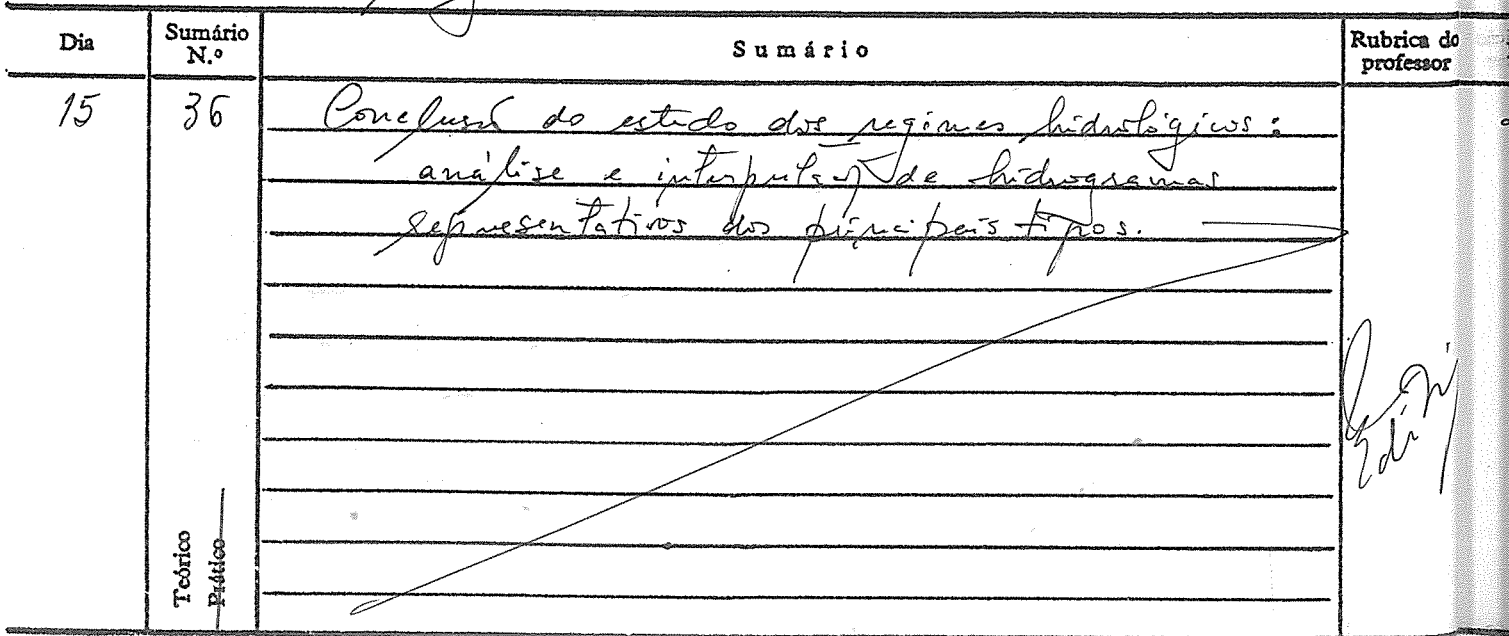 Dia
Sumário N.º
Sumário
Rubrica do professor
15
36
Conclusã do estudo dos regimes hidrológicos:
análise e interpretaç de hidrogramas
representativos dos principais tipos.
Teórico
Prático